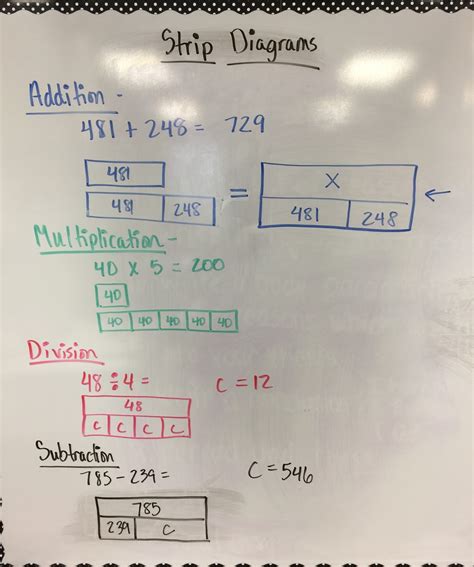 Strip Diagrams
Addition -
481 + 248 = 729
481
481 248
=
X
481 248
←
Multiplication -
40 x 5 = 200
40
40 40 40 40 40
Division
48 ÷ 4 = C = 12
48
C C C C
Subtraction
785 - 239 = C = 546
785
239 C